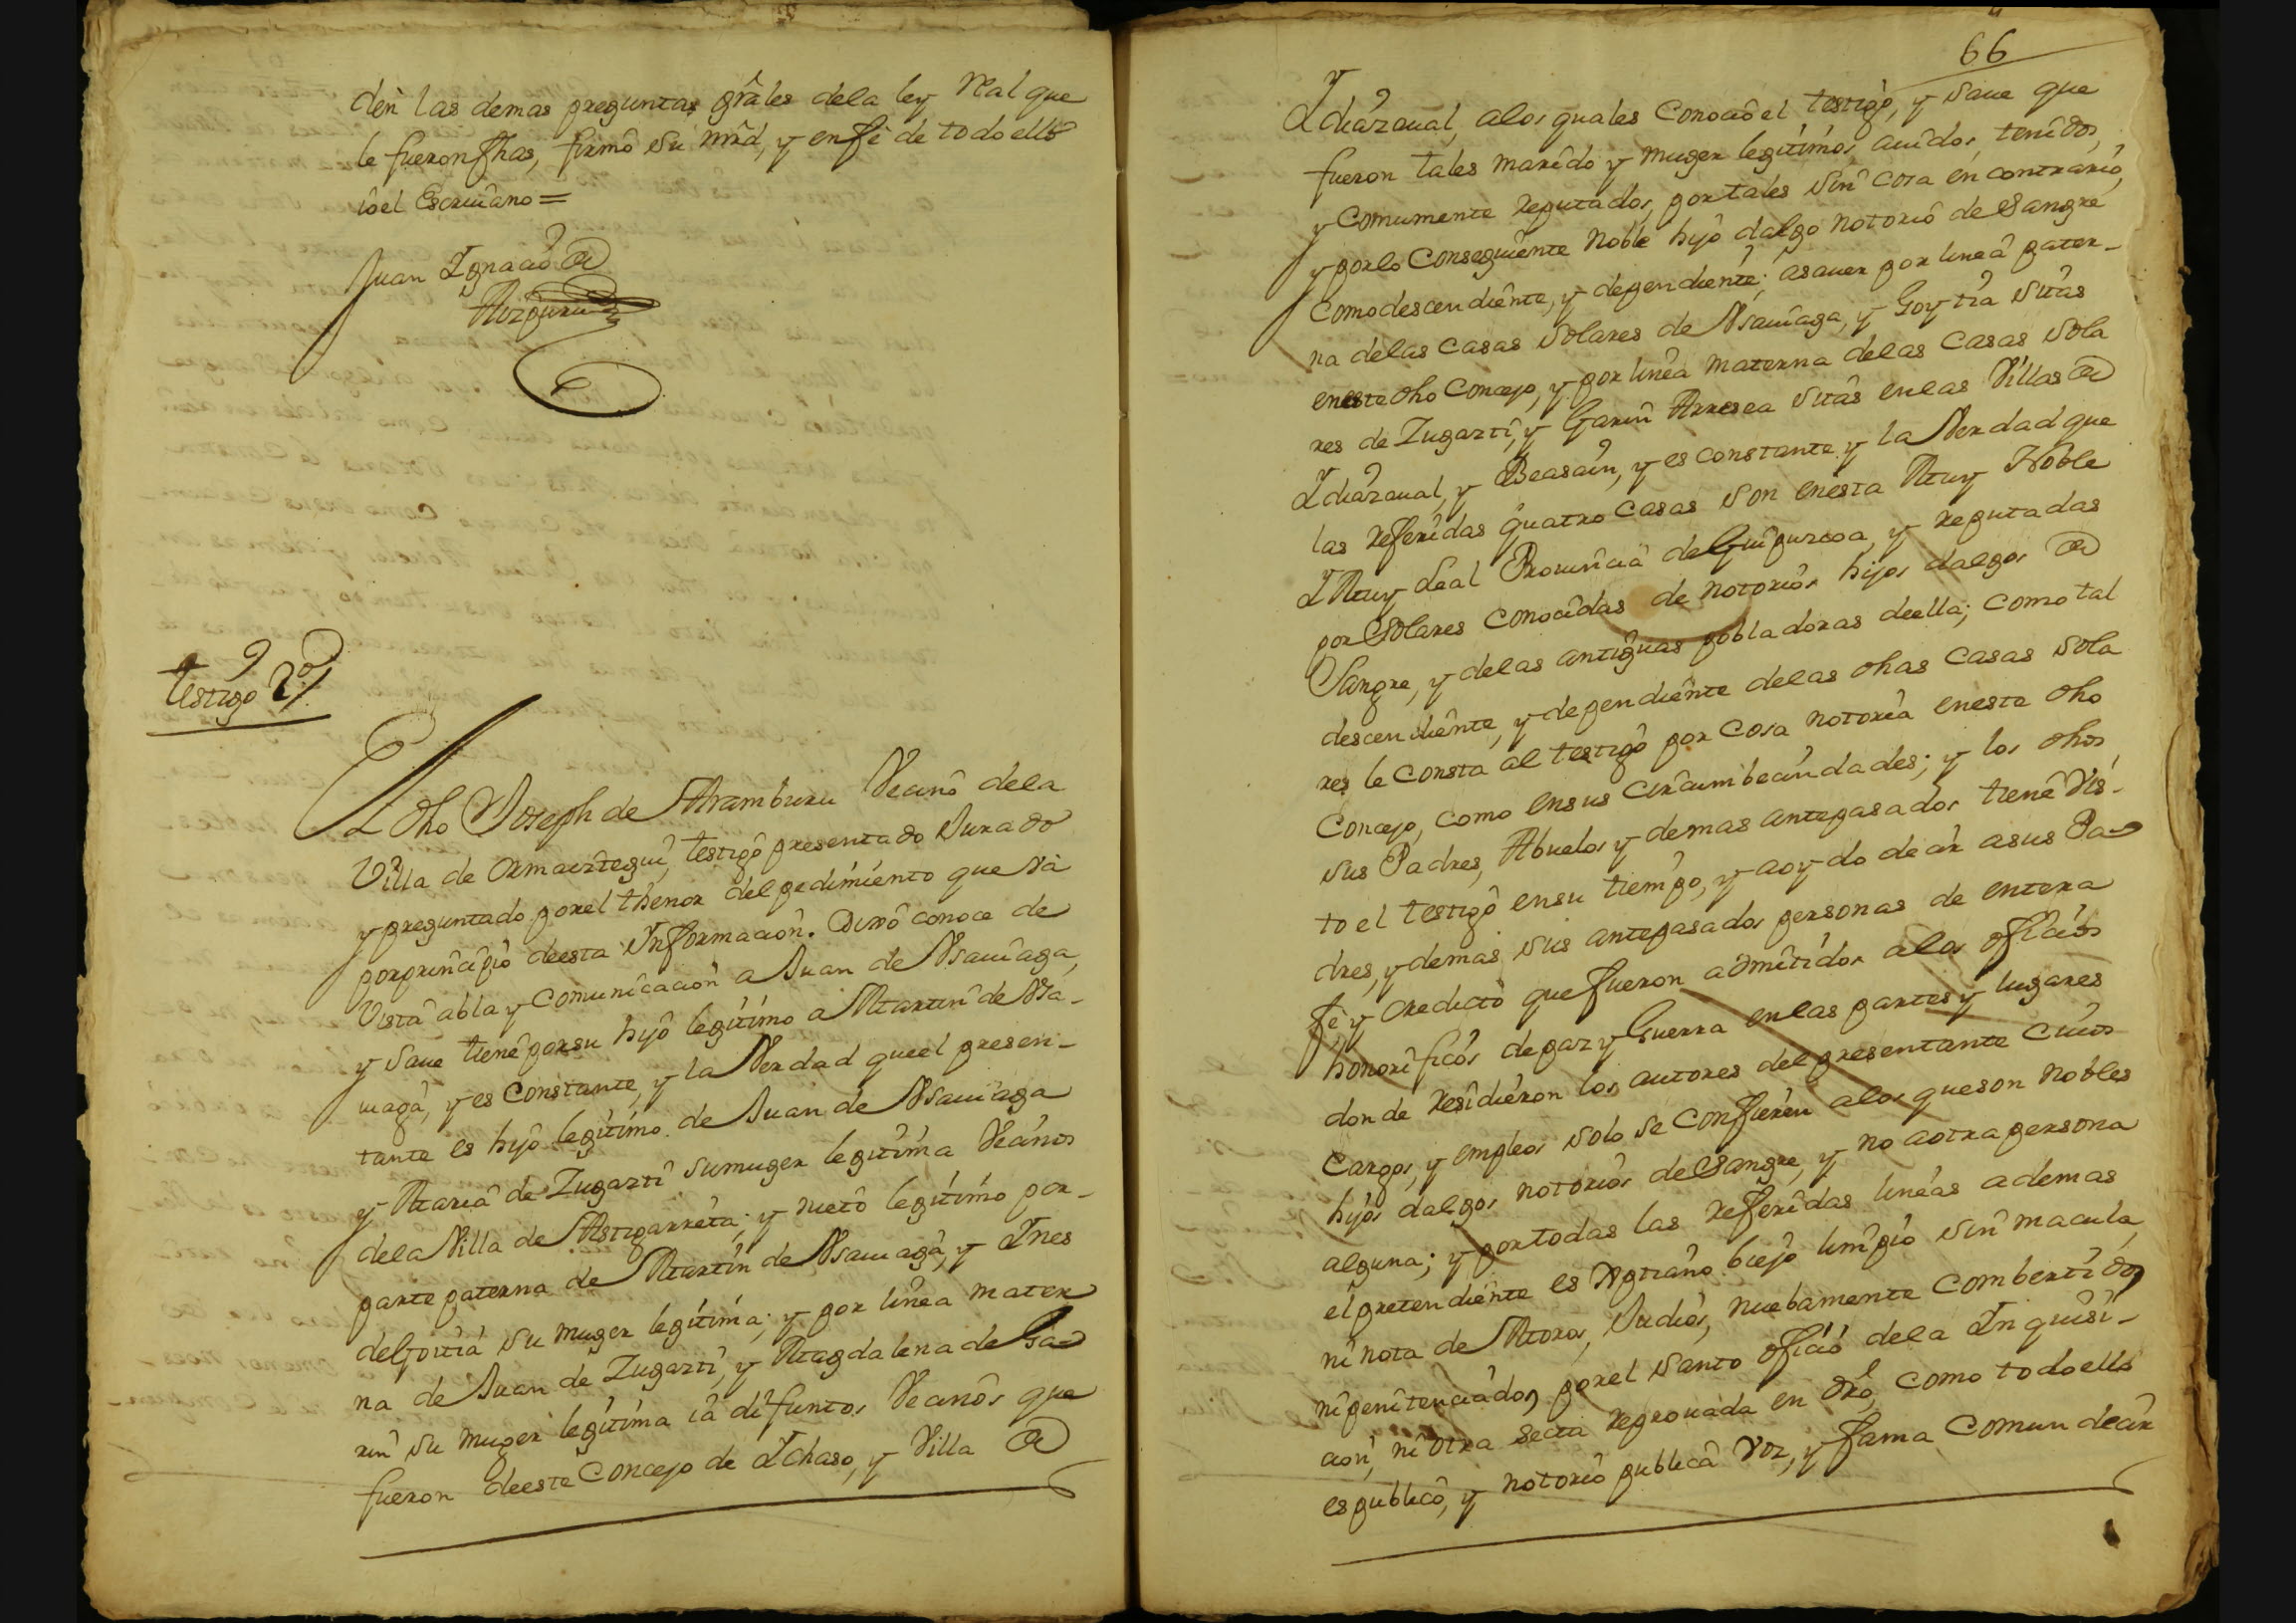 den las demas preguntas grâles dela ley Real que
le fueron fhas, firmô su mrd, y enfé de todo ello
io el Escriuano =
Juan Ignacio de
Aizpuru
testigo 2º
El dho Joseph de Aramburu Vecino dela
Villa de Ormaiztegui, testigo presentado Jurado
y preguntado por el thenor del pedimiento que va
por principio deesta Informacion. Dixo conoce de
Vista abla y comunicacion a Juan de Usauiaga,
y Saue tiene por su hijo legitimo a Martin de Usa-
uiaga, y es Constante, y la Verdad que el presen-
tante es hijo legitimo de Juan de Usauiaga
y Maria de Zugazti su muger legitima Vecinos
dela Villa de Astigarreta; y nieto legitimo por-
parte paterna de Martin de Usauiaga, y Ines
de Goitia su muger legitima; y por linea mater
na de Juan de Zugazti, y Magdalena de Ga
rin su muger legitima ia difuntos Vecinos que
fueron deeste Concejo de Ichaso, y Villa de
66
Idiazaual, alos quales Conocio el testigo, y Saue que
fueron tales marido y muger legitimos auidos, tenidos,
y Comumente reputados, por tales sin cosa en contrario,
y por lo Conseguiente Noble hijo dalgo notorio de Sangre
Como descendiente, y dependiente; asauer por linea pater-
na delas Casas Solares de Usauiaga, y Goytia Sitas
eneste dho Concejo, y por linea materna delas Casas Sola
res de Zugazti, y Garin Arresea Sitas enlas Villas de
Idiazaual, y Beasain, y es constante y la Verdad que
las referidas quatro Casas Son enesta Muy Noble
I Muy Leal Prouincia de Guipuzcoa, y reputadas
por Solares Conocidas de notorios hijos dalgos de
Sangre, y delas antiguas pobladoras deella; como tal
descendiente, y dependiente delas dhas Casas Sola
res le Consta al testigo por Cosa notoria eneste dho
Concejo, como ensus circumbecindades; y los dhos
sus Padres, Abuelos y demas antepasados tiene Vis-
to el testigo ensu tiempo, y a oydo decir asus Pa
dres, y demas sus antepasados personas de entera
fé, y Credicto que fueron admitidos alos oficios
honorificos de paz y Guerra enlas partes y lugares
donde residieron los autores del presentante cuios
Cargos, y empleos Solo Se Confieren alos que son nobles
hijos dalgos notorios de Sangre, y no aotra persona
alguna; y por todas las referidas lineas ademas
el pretendiente es Xptiano biejo limpio sin macula,
ni nota de Moros, Judios, nuebamente Combertidos
ni penitenciados por el Santo oficio dela Inquisi-
cion, ni otra Secta reprouada en dro, como todo ello
es publico, y notorio publica Voz, y fama Comun decir